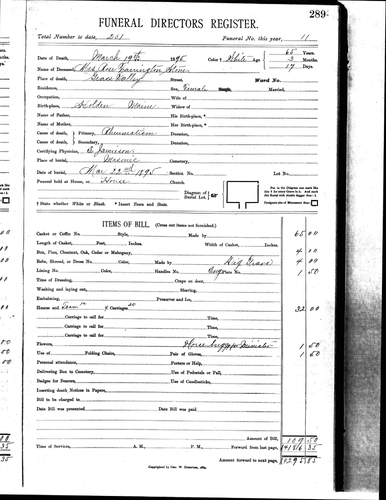 289
FUNERAL DIRECTORS REGISTER.
Total Number to date, 201 Funeral No. this year, 11
Date of Death, March 19th 1895 Color † White Age 65 Years. 3 Months. 17 Days.
Name of Deceased, Mrs Farrington Stone
Place of death, Grass Valley Street. Ward No.
Residence, Sex, Female Single, Married.
Occupation, Wife of
Birth-place, Holden Maine Widow of
Name of Father, His Birth-place, *
Name of Mother, Her Birth-place, *
Cause of death, Primary, Rheumatism Duration,
Cause of death, Secondary, Duration,
Certifying Physician, Jamison His Residence,
Place of burial, Masonic Cemetery,
Date of burial, Mar 22nd 1895 Section No. Lot No.
Funeral held at House or Home Church.
Diagram of Burial Lot.
Put in the Diagram one mark like this for every grave.
† State whether White or Black. * Insert Town and State.
ITEMS OF BILL. (Cross out items not furnished.)
Casket or Coffin No. Style, Made by 65 00
Length of Casket, Feet, Inches. Width of Casket, Inches.
Box, Pine, Chestnut, Oak, Cedar or Mahogany, 4 00
Robe, Shroud, or Dress No. Color, Made by Grave 4 00
Lining No. Color, Handles No. Plate No. 1 50
Time of Dressing, Crape on door,
Washing and laying out, Shaving,
Embalming, Preserver and Ice,
Hearse and Team Carriages 32 00
Carriage to call for Time,
Carriage to call for Time,
Carriage to call for Time,
Carriage to call for Time,
Flowers, Horse buggy for Minister 1 50
Use of Folding Chairs, Pair of Gloves, 1 50
Personal attendance, Porters or Help,
Delivering Box to Cemetery, Use of Pedestals or Pall,
Badges for Bearers, Use of Candlesticks,
Inserting death Notices in Papers,
Bill to be charged to
Date Bill was presented Date Bill was paid
Amount of Bill, 109 50
Time of Services, A. M., P. M., Forward from last page,
Amount forward to next page,